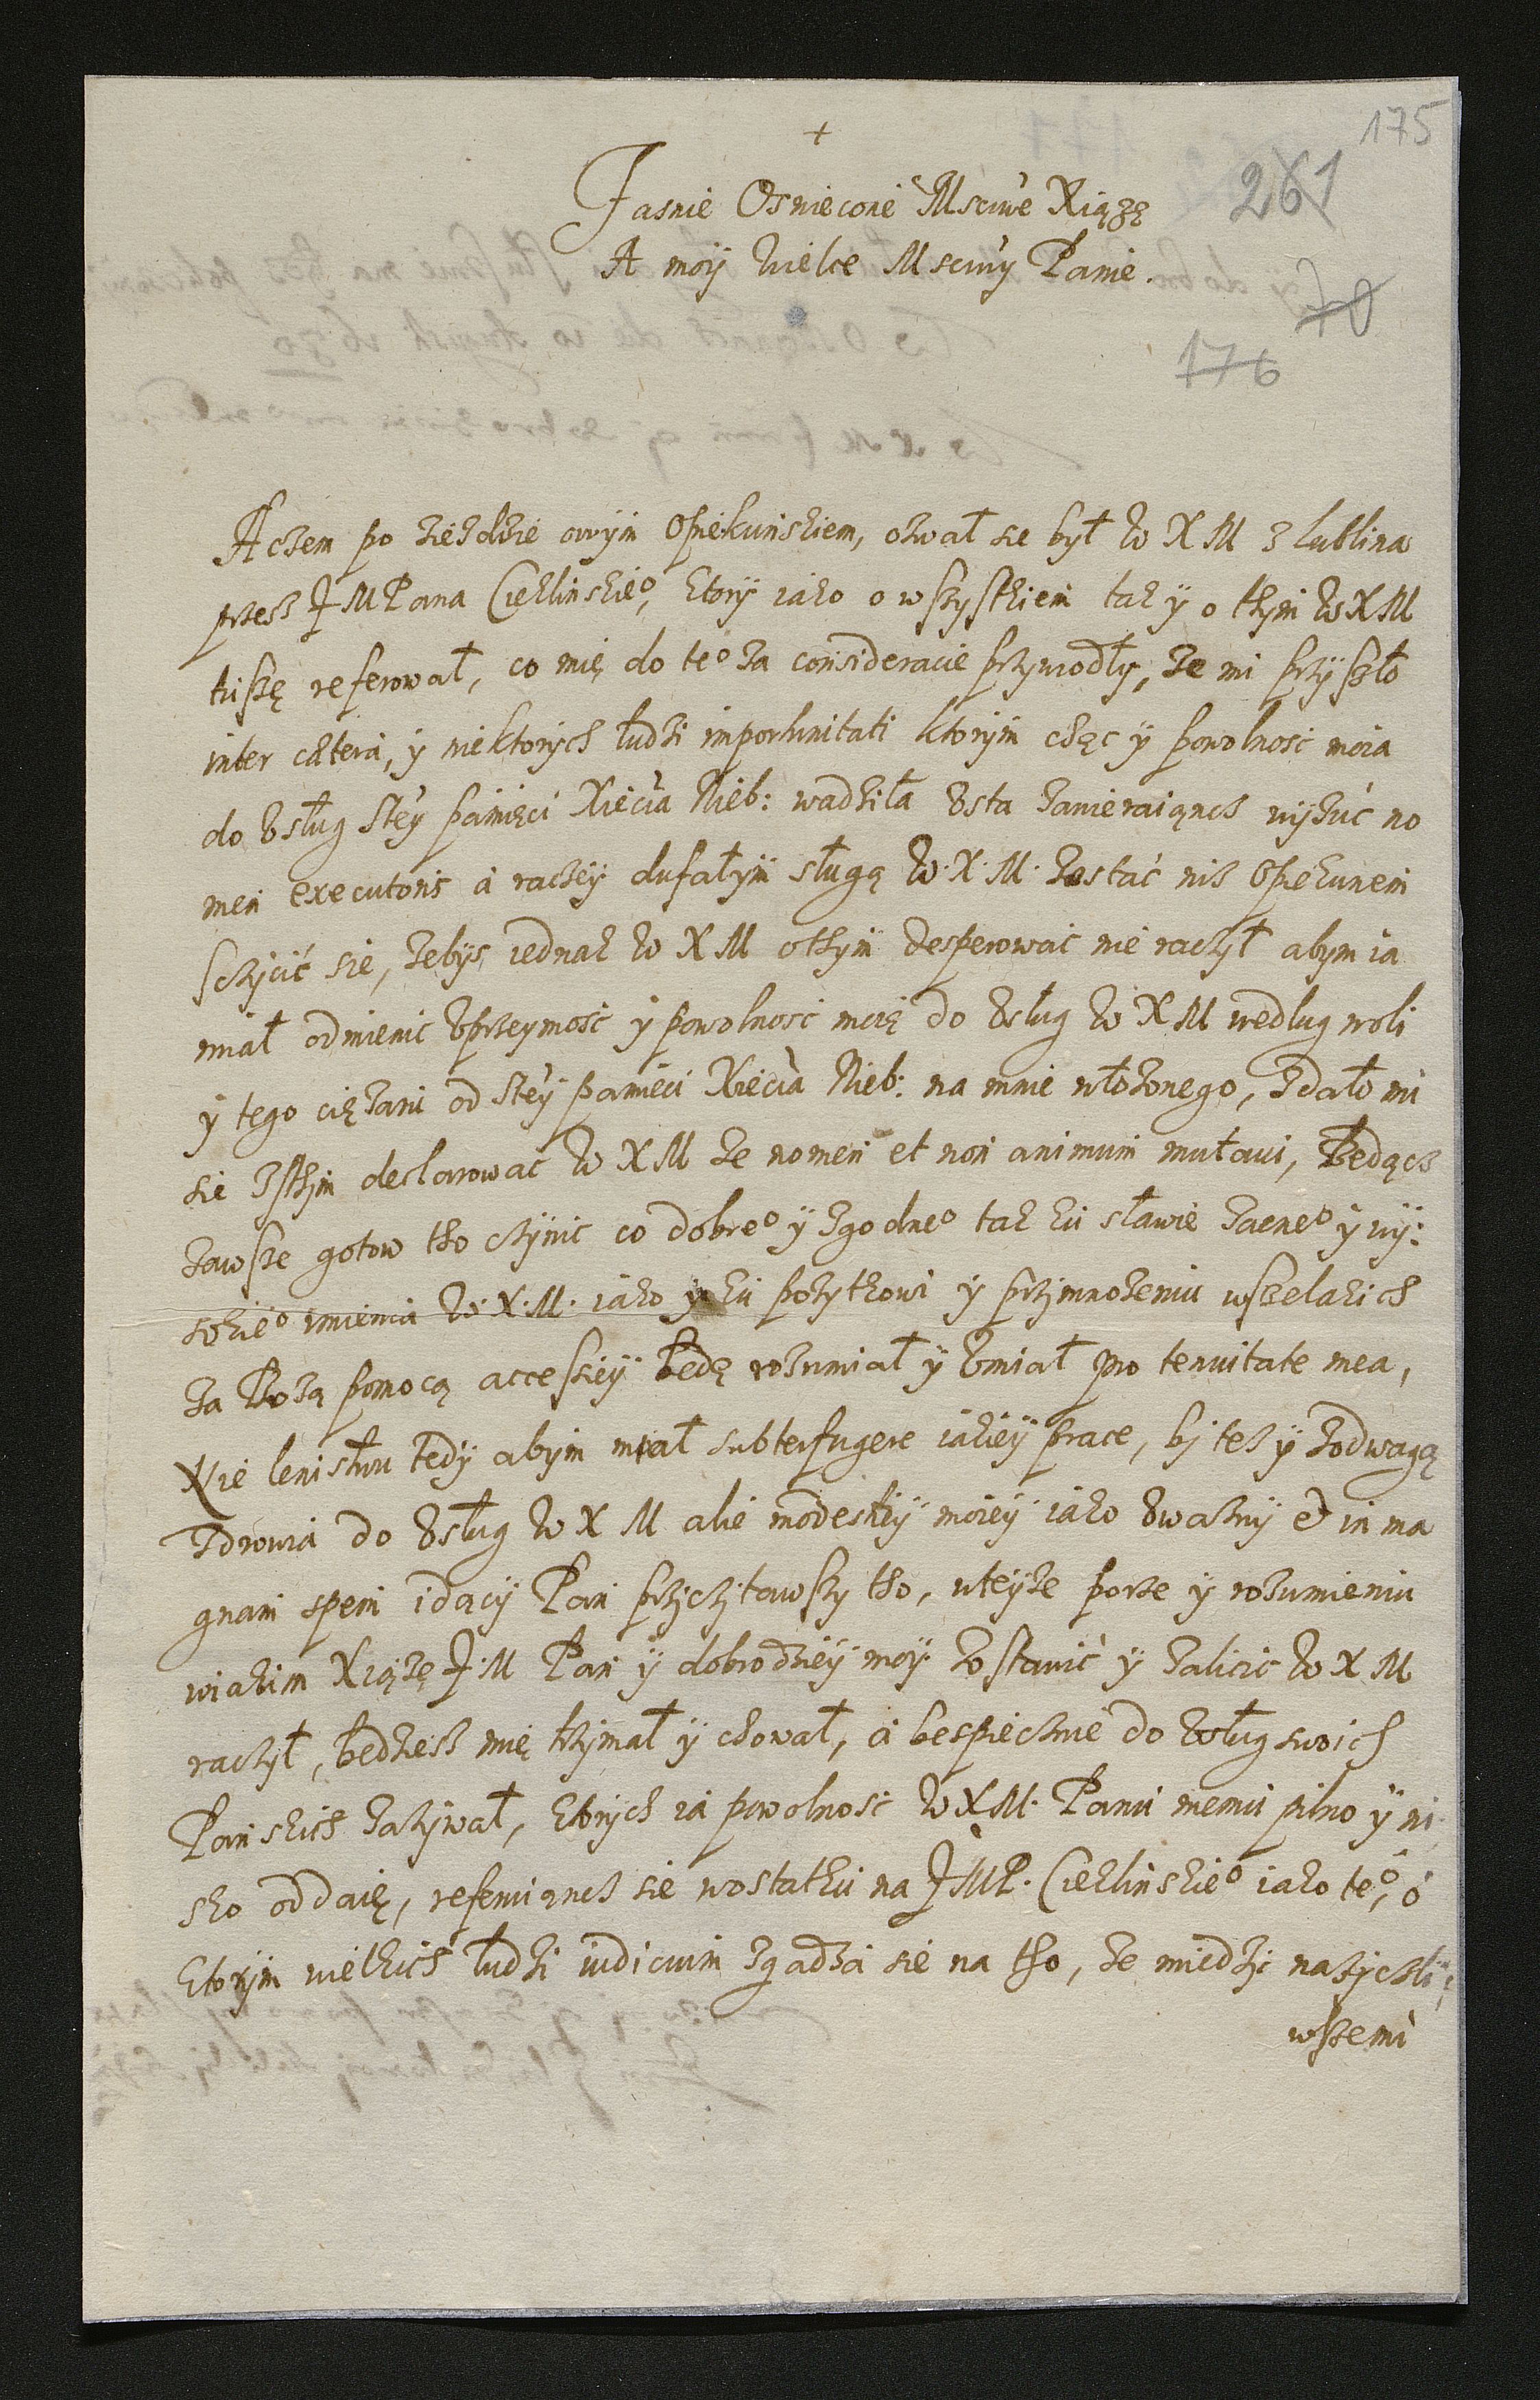 175
+
261
Jasnie Osniecone Msciwe Xiążę
A moÿ Wielce Msciwy Panie.
70
176
Aczem po zieżdzie owÿm Opiekunskiem, ozwał sie był W X M z lublina
przesz J M Pana Cieklinskie°, ktorÿ iako o wszystkiem tak ÿ o thym W X M
tuszę referował, co mię do te° za consideracie przywiodły, że mi przÿszło
inter cætera, ÿ niektorÿch ludzi importunitati ktorÿm chęc ÿ powolnosc moia
do vsług S̃teÿ pamięci Xiecia Nieb: wadziła vsta zawieraiąncz wyzuć no
men executoris a raczeÿ dufałÿm sługą W. X. M. zostać niż Opiekunem
sczÿcić sie, żebÿs iednak W X M othÿm desperowac nie raczÿł abym ia
miał odmienic vprzeymosc ÿ powolnosc moię do vsług W X M wedlug woli
ÿ tego ciężaru od S̃teÿ pamieci Xiecia Nieb: na mnie włożonego, zdało mi
sie zsthym declarowac W X M że nomen et non animum mutaui, będącz
zawsze gotow tho czÿnic co dobre° ÿ zgodne° tak ku sławie zacne° ÿ wÿ:
sokie° imienia W. X. M. iako ÿ ku pożytkowi ÿ przymnożeniu wszelakich
za Bożą pomocą accessiÿ będę rozumiał ÿ vmiał pro tenuitate mea,
Nie lenistwu tedÿ abÿm miał subterfugere iakieÿ prace, by tesz ÿ zodwagą
zdrowia do vsług W X M alie modestieÿ moieÿ iako vważnÿ & in ma
gnam spem idącÿ Pan przyczytawszy tho, wteÿże porze ÿ rozumieniu
wiakim Xiążę J. M Pan ÿ dobrodzieÿ moÿ zostawic ÿ zalicic W X M
raczÿł, będziesz mię trzÿmał ÿ chował, a bespiecznie do vsług swoich
Panskich zażÿwał, ktorÿch ia powolnosc W X M. Panu memu pilno ÿ ni
sko oddaię, referuiąncz sie wostatku na J M P. Cieklinskie° iako te°, o
ktorÿm wielkich ludzi iudicium zgadza sie na tho, że miedzy nażÿczli:
wszemi